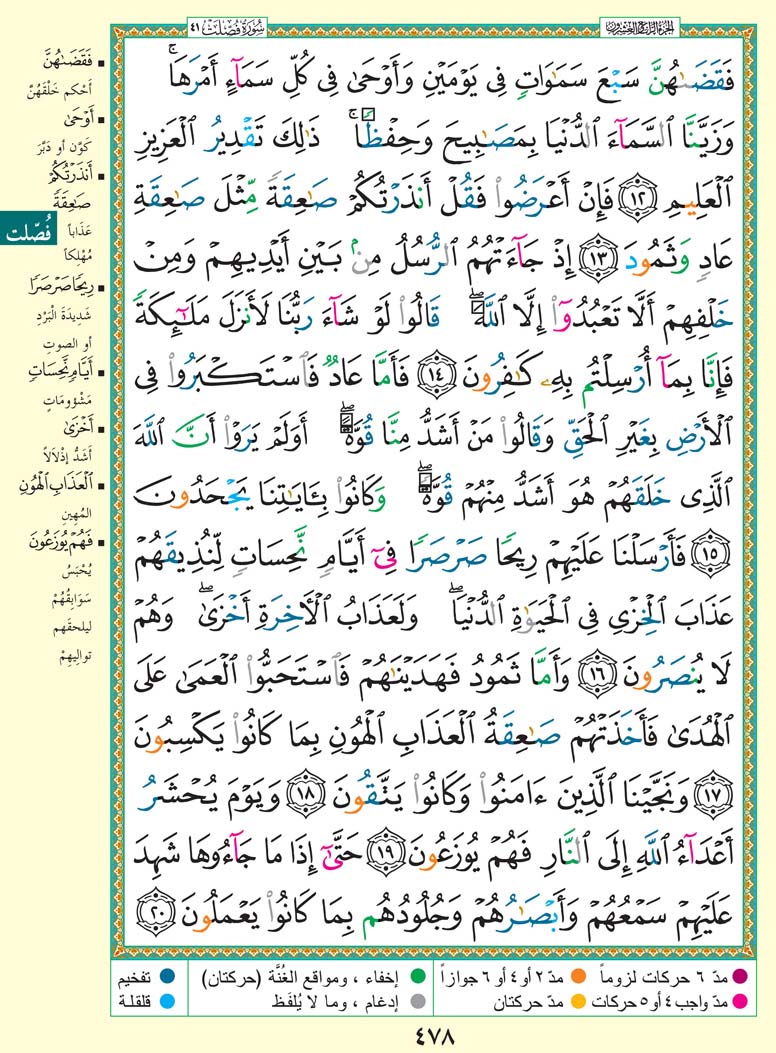 سُورَةُ فُصِّلَتْ ٤١
الجزء الرابع والعشرون
فَقَضَىٰهُنَّ سَبْعَ سَمَٰوَاتٍ فِى يَوْمَيْنِ وَأَوْحَىٰ فِى كُلِّ سَمَآءٍ أَمْرَهَا ۚ
وَزَيَّنَّا ٱلسَّمَآءَ ٱلدُّنْيَا بِمَصَٰبِيحَ وَحِفْظًا ۚ ذَٰلِكَ تَقْدِيرُ ٱلْعَزِيزِ
ٱلْعَلِيمِ ١٢ فَإِنْ أَعْرَضُوا۟ فَقُلْ أَنذَرْتُكُمْ صَٰعِقَةً مِّثْلَ صَٰعِقَةِ
عَادٍ وَثَمُودَ ١٣ إِذْ جَآءَتْهُمُ ٱلرُّسُلُ مِنۢ بَيْنِ أَيْدِيهِمْ وَمِنْ
خَلْفِهِمْ أَلَّا تَعْبُدُوٓا۟ إِلَّا ٱللَّهَ ۖ قَالُوا۟ لَوْ شَآءَ رَبُّنَا لَأَنزَلَ مَلَٰٓئِكَةً
فَإِنَّا بِمَآ أُرْسِلْتُم بِهِۦ كَٰفِرُونَ ١٤ فَأَمَّا عَادٌ فَٱسْتَكْبَرُوا۟ فِى
ٱلْأَرْضِ بِغَيْرِ ٱلْحَقِّ وَقَالُوا۟ مَنْ أَشَدُّ مِنَّا قُوَّةً ۖ أَوَلَمْ يَرَوْا۟ أَنَّ ٱللَّهَ
ٱلَّذِى خَلَقَهُمْ هُوَ أَشَدُّ مِنْهُمْ قُوَّةً ۖ وَكَانُوا۟ بِـَٔايَٰتِنَا يَجْحَدُونَ
١٥ فَأَرْسَلْنَا عَلَيْهِمْ رِيحًا صَرْصَرًا فِىٓ أَيَّامٍ نَّحِسَاتٍ لِّنُذِيقَهُمْ
عَذَابَ ٱلْخِزْىِ فِى ٱلْحَيَوٰةِ ٱلدُّنْيَا ۖ وَلَعَذَابُ ٱلْأَخِرَةِ أَخْزَىٰ ۖ وَهُمْ
لَا يُنصَرُونَ ١٦ وَأَمَّا ثَمُودُ فَهَدَيْنَٰهُمْ فَٱسْتَحَبُّوا۟ ٱلْعَمَىٰ عَلَى
ٱلْهُدَىٰ فَأَخَذَتْهُمْ صَٰعِقَةُ ٱلْعَذَابِ ٱلْهُونِ بِمَا كَانُوا۟ يَكْسِبُونَ
١٧ وَنَجَّيْنَا ٱلَّذِينَ ءَامَنُوا۟ وَكَانُوا۟ يَتَّقُونَ ١٨ وَيَوْمَ يُحْشَرُ
أَعْدَآءُ ٱللَّهِ إِلَى ٱلنَّارِ فَهُمْ يُوزَعُونَ ١٩ حَتَّىٰٓ إِذَا مَا جَآءُوهَا شَهِدَ
عَلَيْهِمْ سَمْعُهُمْ وَأَبْصَٰرُهُمْ وَجُلُودُهُم بِمَا كَانُوا۟ يَعْمَلُونَ ٢٠
■ فَقَضَىٰهُنَّ
أَحْكَم خَلْقَهُنَّ
■ أَوْحَىٰ
كَوَّن أو دَبَّرَ
■ أَنذَرْتُكُمْ
صَٰعِقَةً
عَذَاباً
مُهْلِكاً
فُصِّلَت
■ رِيحًا صَرْصَرًا
شَدِيدَةَ الْبَرْدِ
أو الصوتِ
■ أَيَّامٍ نَّحِسَاتٍ
مَشْؤُومَاتٍ
■ أَخْزَىٰ
أَشَدُّ إِذْلَالاً
■ ٱلْعَذَابِ ٱلْهُونِ
المُهِينِ
■ فَهُمْ يُوزَعُونَ
يُحْبَسُ
سَوَابِقُهُمْ
ليلحقَهم
تواليهِمْ
مدّ ٦ حركات لزوماً
مدّ ٢ أو ٤ أو ٦ جوازاً
إخفاء ، ومواقع الغُنَّة (حركتان)
تفخيم
مدّ واجب ٤ أو ٥ حركات
مدّ حركتان
إدغام ، وما لا يُلفَظ
قلقلة
٤٧٨